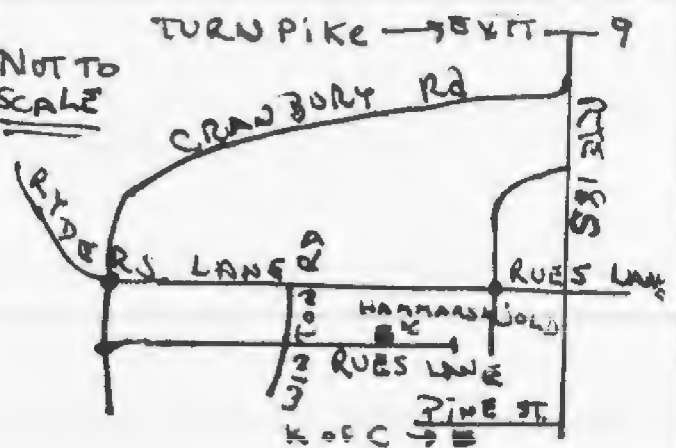 TURNPIKE → EXIT 9
NOT TO
SCALE
CRANBURY Rd
RTE 18S
RYDERS LANE
RUES LANE
WINTON RD
HAMMARSKJOLD
K
RUES LANE
PINE ST.
K of C →